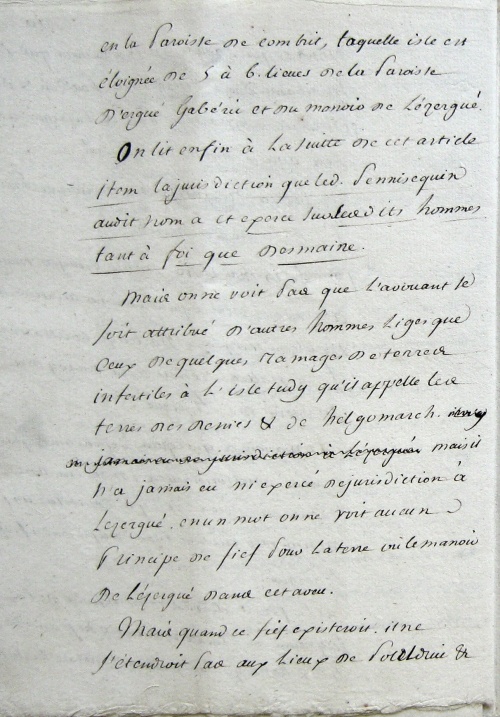 en la Paroisse de combrit, laquelle isle est
éloignée de 5 à 6. lieues de la Paroisse
d'ergué Gabéric et du manoir de Lézergué.
On lit enfin à la suitte de cet article
item la jurisdiction que led. Pennisequin
audit nom a et exerce sur lesdits hommes
tant à foi que domaine.
Mais on ne voit pas que l'avouant se
soit attribué d'autres hommes liges que
ceux de quelques ramages de terres
infertiles à l'isletudy qu'il appelle les
terres des & de helgomarch.
jamais jurisdiction à Lézergué mais il
n'a jamais eu ni exercé de jurisdiction à
Lezergué. en un mot on ne voit aucun
Principe de fief pour la terre ni le manoir
de Lézergué dans cet aveu.
Mais quand ce fief existeroit. il ne
s'étendroit pas aux lieux de &